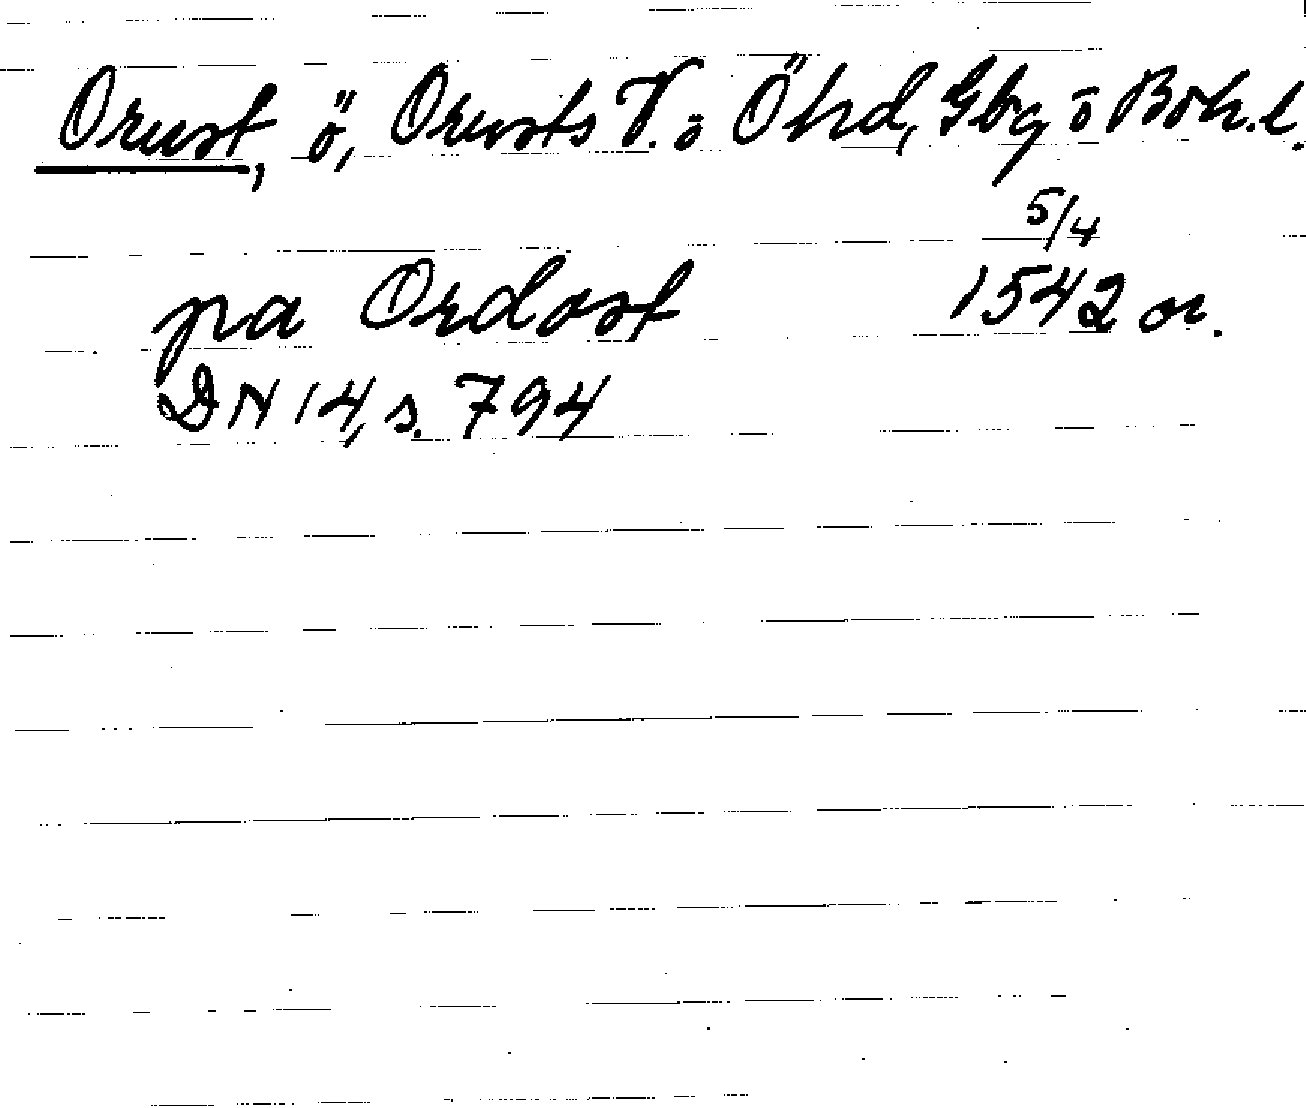 Orust, ö, Orusts V. o Öhd, Gbg o Boh.l.
5/4
pa Ordost 1542 or.
DN 14, s. 794